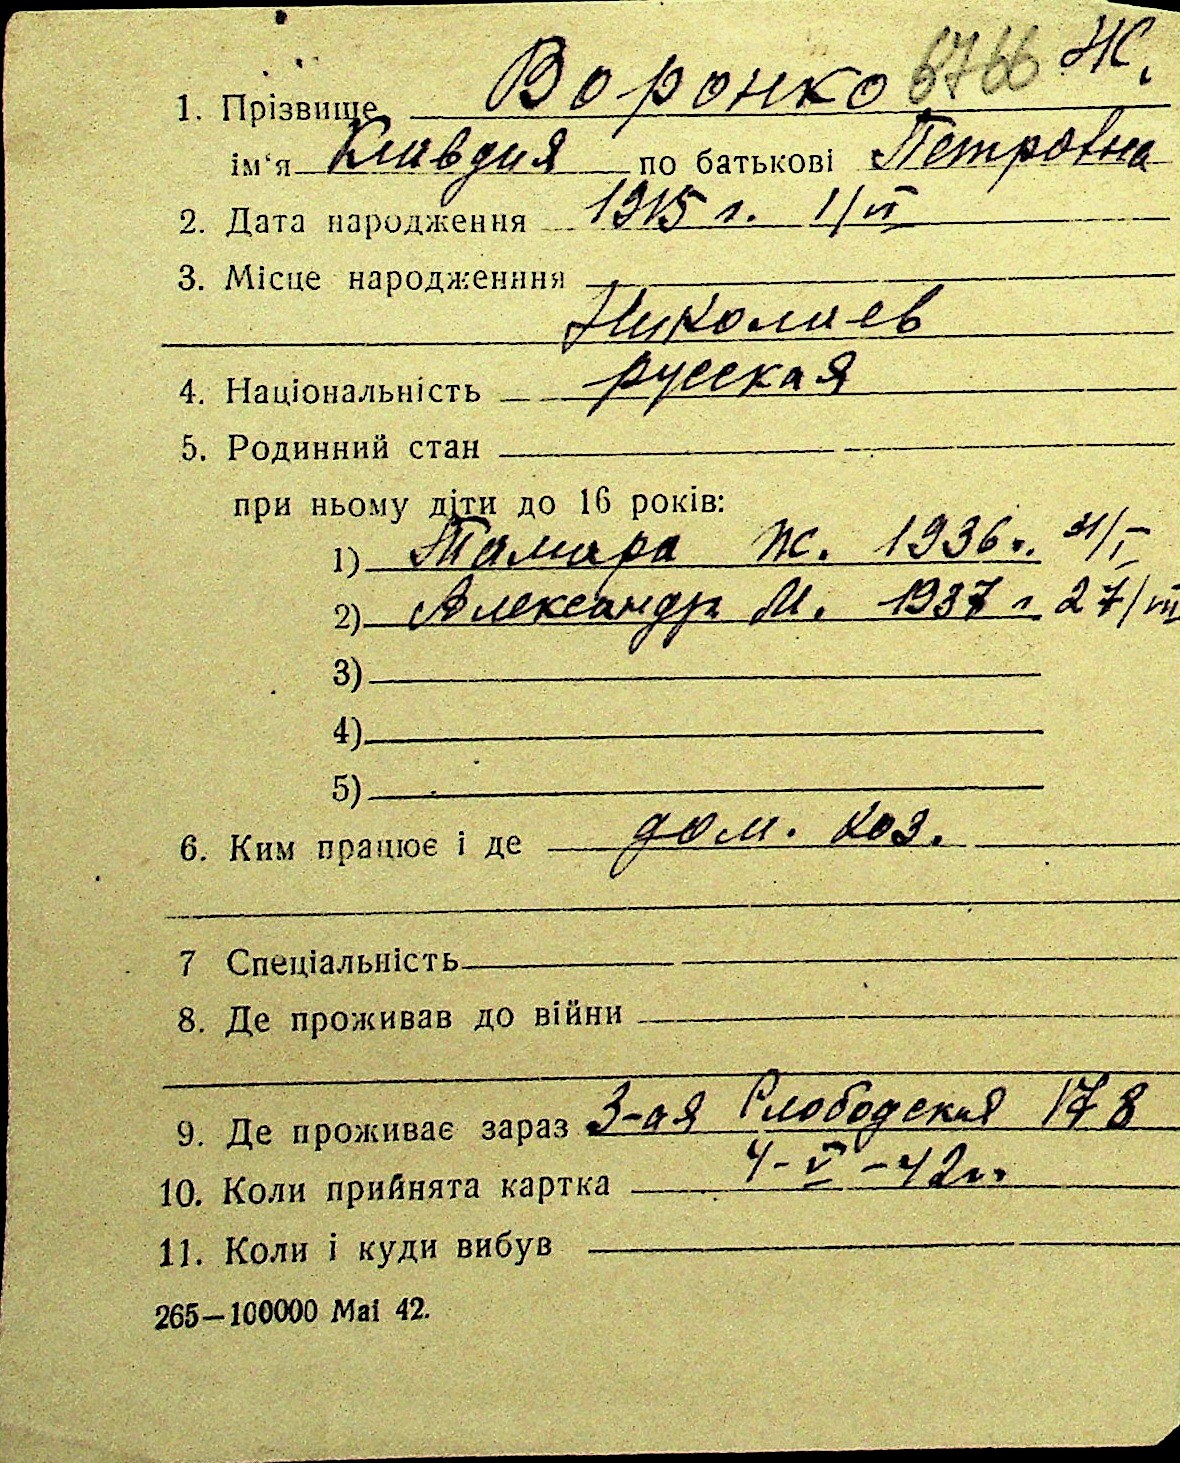 6766 Ж.
1. Прізвище Воронко
ім'я Клавдия по батькові Петровна
2. Дата народження 1915 г. 1/VI
3. Місце народженння
Николаев
4. Національність русская
5. Родинний стан
при ньому діти до 16 років:
1) Тамара Ж. 1936 г.
2) Александр М. 1937 г 27/VII
3)
4)
5)
6. Ким працює і де дом. хоз.
7 Спеціальність
8. Де проживав до війни
9. Де проживає зараз 3-ая Слободская 178
10. Коли прийнята картка 4-V-42 г.
11. Коли і куди вибув
265—100000 Mai 42.